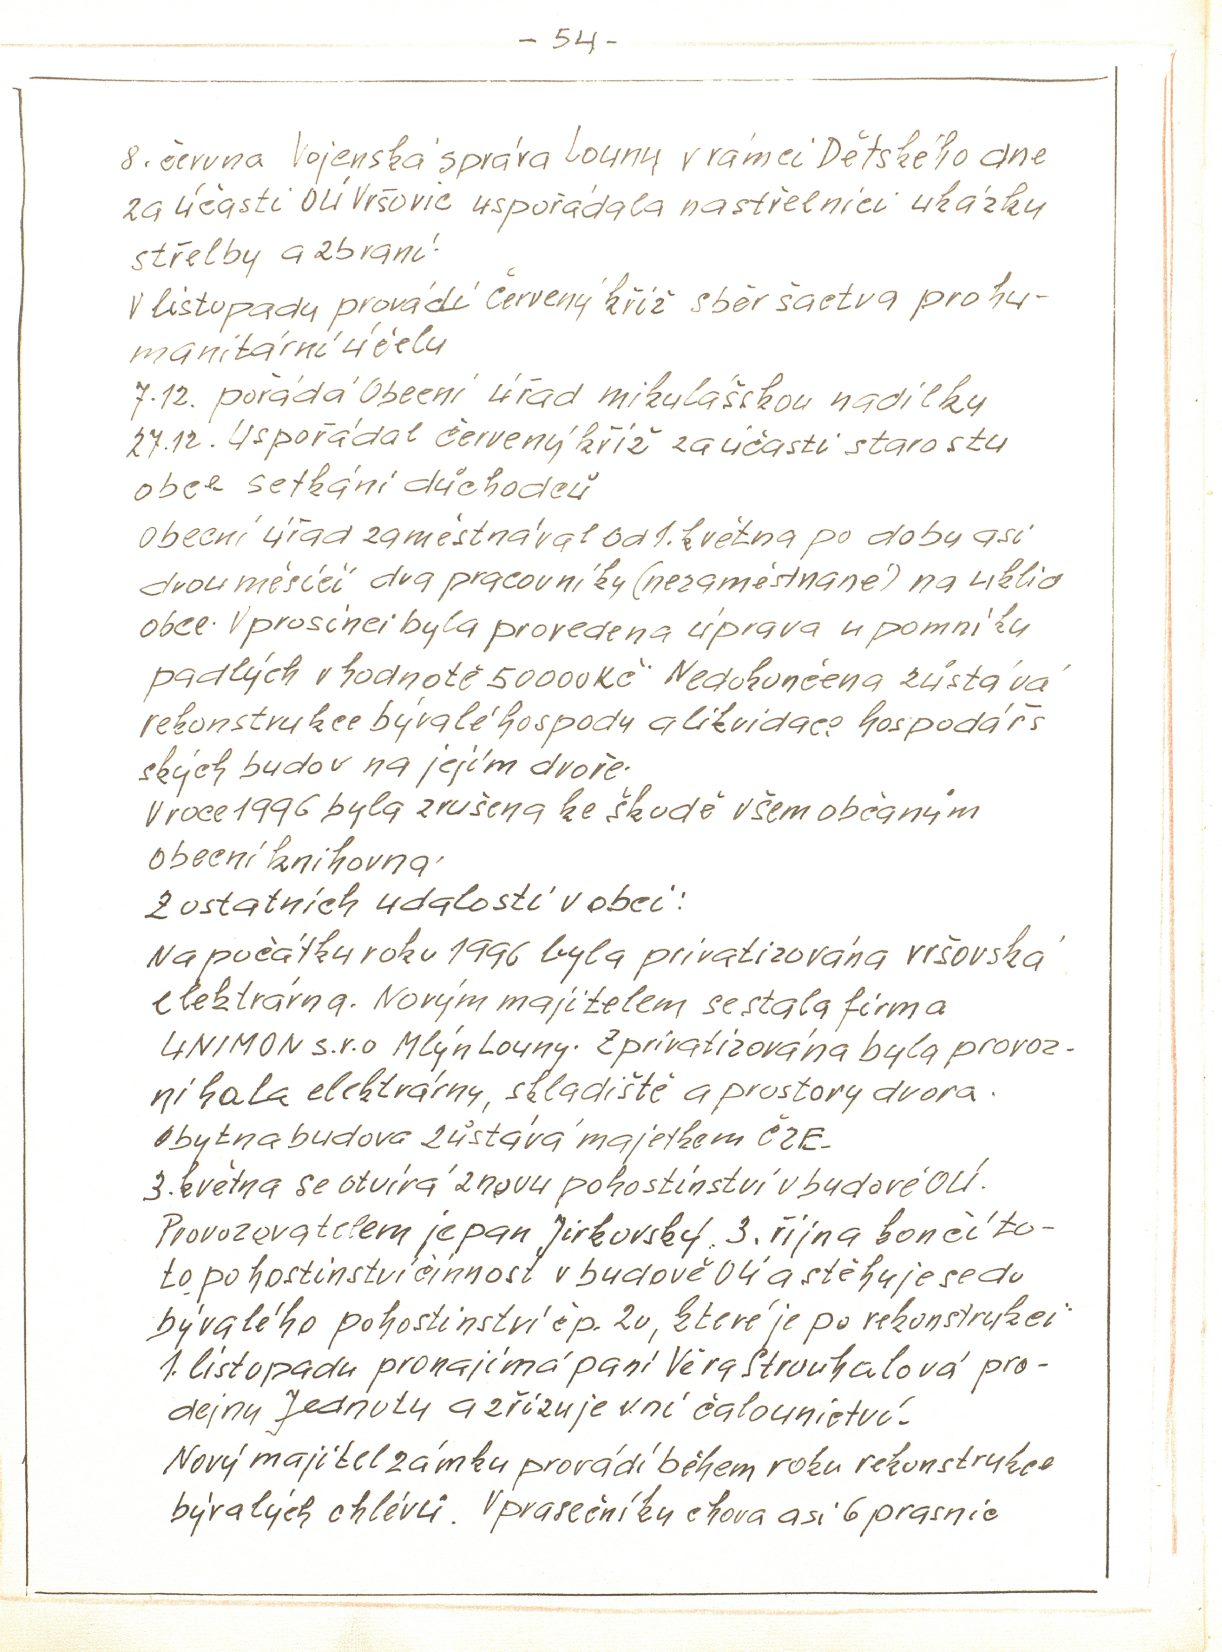 - 54 -
8. června Vojenská správa Louny v rámci Dětského dne
za účasti OÚ Vršovic uspořádala na střelnici ukázku
střelby a zbraní.
V listopadu provádí Červený kříž sběr šactva pro hu-
manitární účely
7.12. pořádá Obecní úřad mikulášskou nadílku
27.12. Uspořádal červený kříž za účasti starosty
obce setkání důchodců
Obecní úřad zaměstnával od 1. května po dobu asi
dvou měsíčí dva pracovníky (nezaměstnané) na uklid
obce. V prosinci byla provedena úprava u pomníku
padlých v hodnotě 50000 Kč. Nedokončena zůstává
rekonstrukce bývalé hospody a likvidace hospodářs
ských budov na jejím dvoře.
V roce 1996 byla zrušena ke škodě všem občanům
obecní knihovna.
Z ostatních událostí v obci:
Na počátku roku 1996 byla privatizována vršovská
elektrárna. Novým majitelem se stala firma
UNIMON s.r.o Mlýn Louny. Zprivatizována byla provoz-
ní hala elektrárny, skladiště a prostory dvora.
Obytna budova zůstává majetkem ČZE.
3. května se otvírá znovu pohostinství v budově OÚ.
Provozovatelem je pan Jirkovský. 3. října končí to-
to pohostinství činnost v budově OÚ a stěhuje se do
bývalého pohostinství čp. 20, které je po rekonstrukci.
1. listopadu pronajímá paní Věra Strouhalová pro-
dejnu Jednoty a zřizuje v ní čalounictví.
Nový majitel zámku provádí během roku rekonstrukce
bývalých chlévů. V prasečníku chova asi 6 prasnic